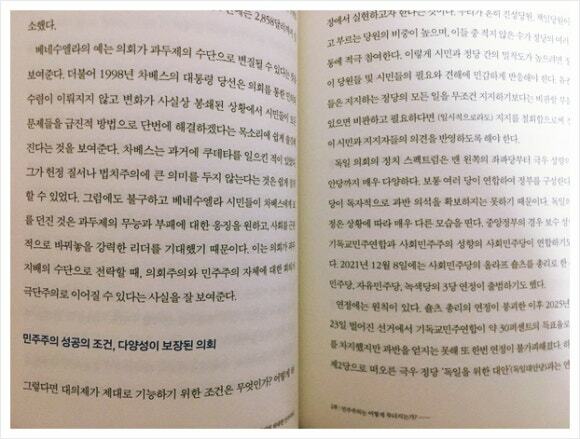 2,858달러에서
소했다.
베네수엘라의 예는 의회가 과두제의 수단으로 변질될 수 있다는
보여준다. 더불어 1998년 차베스의 대통령 당선은 의회를 통한
수렴이 이뤄지지 않고 변화가 사실상 봉쇄된 상황에서 시민들이
문제들을 급진적 방법으로 단번에 해결하겠다는 목소리에 쉽게
진다는 것을 보여준다. 차베스는 과거에 쿠데타를 일으킨 적이
그가 헌정 질서나 법치주의에 큰 의미를 두지 않는다는 것은 쉽게
할 수 있었다. 그럼에도 불구하고 베네수엘라 시민들이 차베스에게
를 던진 것은 과두제의 무능과 부패에 대한 응징을 원하고, 사회를
적으로 바꿔놓을 강력한 리더를 기대했기 때문이다. 이는 의회가
지배의 수단으로 전락할 때, 의회주의와 민주주의 자체에 대한
극단주의로 이어질 수 있다는 사실을 잘 보여준다.
민주주의 성공의 조건, 다양성이 보장된 의회
그렇다면 대의제가 제대로 기능하기 위한 조건은 무엇인가? 어떻게
장에서 실현하고자 한다는 것이다. 우리가 흔히 진성당원, 책임당원이
고 부르는 당원의 비중이 높으며, 이들 중 적지 않은 수가 정당의
동에 적극 참여한다. 이렇게 시민과 정당 간의 밀착도가 높으려면
이 당원들 및 시민들의 필요와 견해에 민감하게 반응해야 한다.
들은 지지하는 정당의 모든 일을 무조건 지지하기보다는 비판할
있으면 비판하고 필요하다면 (일시적으로라도) 지지를 철회함으로써
이 시민과 지지자들의 의견을 반영하도록 해야 한다.
독일 의회의 정치 스펙트럼은 맨 왼쪽의 좌파당부터 극우 성향의
안당까지 매우 다양하다. 보통 여러 당이 연합하여 정부를 구성한다.
당이 독자적으로 과반 의석을 확보하지는 못하기 때문이다. 독일의
정은 상황에 따라 매우 다른 모습을 띤다. 중앙정부의 경우 보수 성
기독교민주연합과 사회민주주의 성향의 사회민주당이 연합하기도
다. 2021년 12월 8일에는 사회민주당의 올라프 숄츠를 총리로 한
민주당, 자유민주당, 녹색당의 3당 연정이 출범하기도 했다.
연정에는 원칙이 있다. 숄츠 총리의 연정이 붕괴한 이후 2025년
23일 벌어진 선거에서 기독교민주연합이 약 30퍼센트의 득표율로
를 차지했지만 과반을 얻지는 못해 또 한번 연정이 불가피해졌다.
제2당으로 떠오른 극우 정당 '독일을 위한 대안'(독일대안당)과는
민주주의는 어떻게 무너지는가?